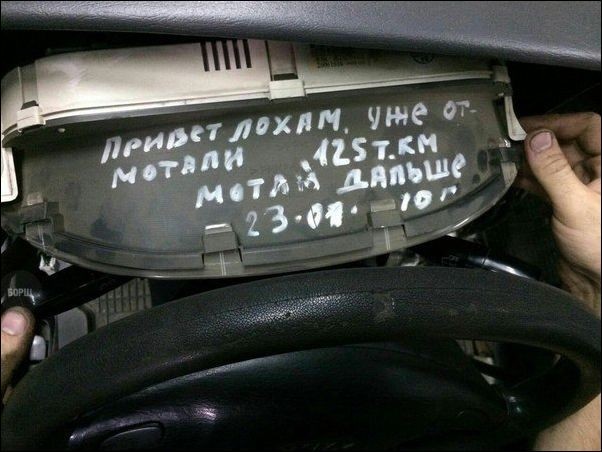 ПРИВЕТ ЛОХАМ, УЖЕ ОТ-
МОТАЛИ 125 Т.КМ
МОТАЙ ДАЛЬШЕ
23.01. 10 г
БОРЩ